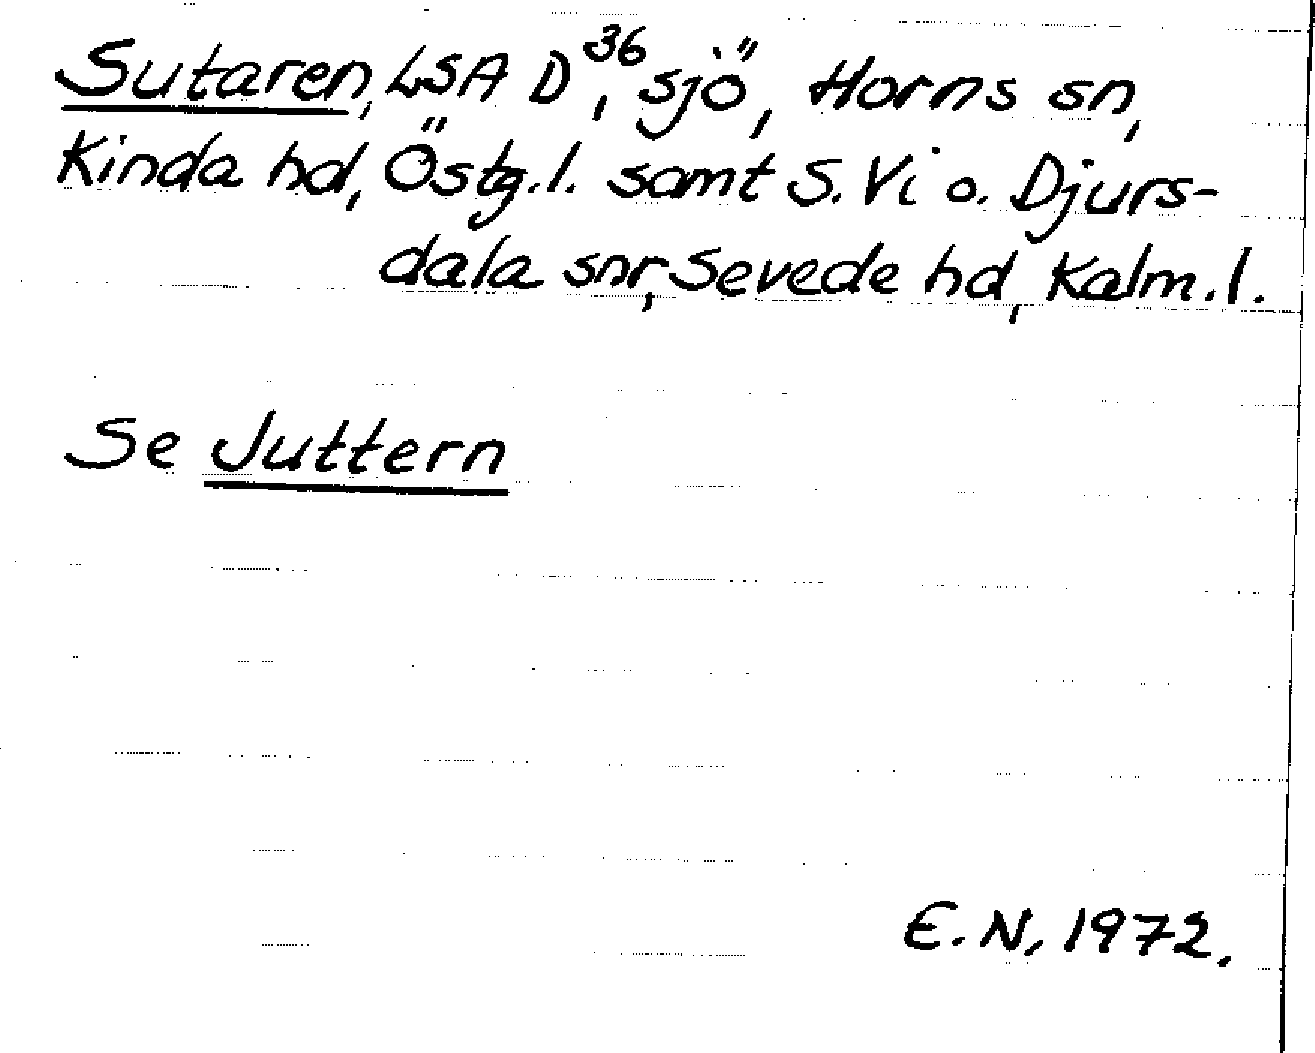 Sutaren, LSA D³⁶, sjö, Horns sn,
Kinda hd, Östg.l. samt S. Vi o. Djurs-
dala snr, Sevede hd, Kalm.l.
Se Juttern
E.N. 1972.